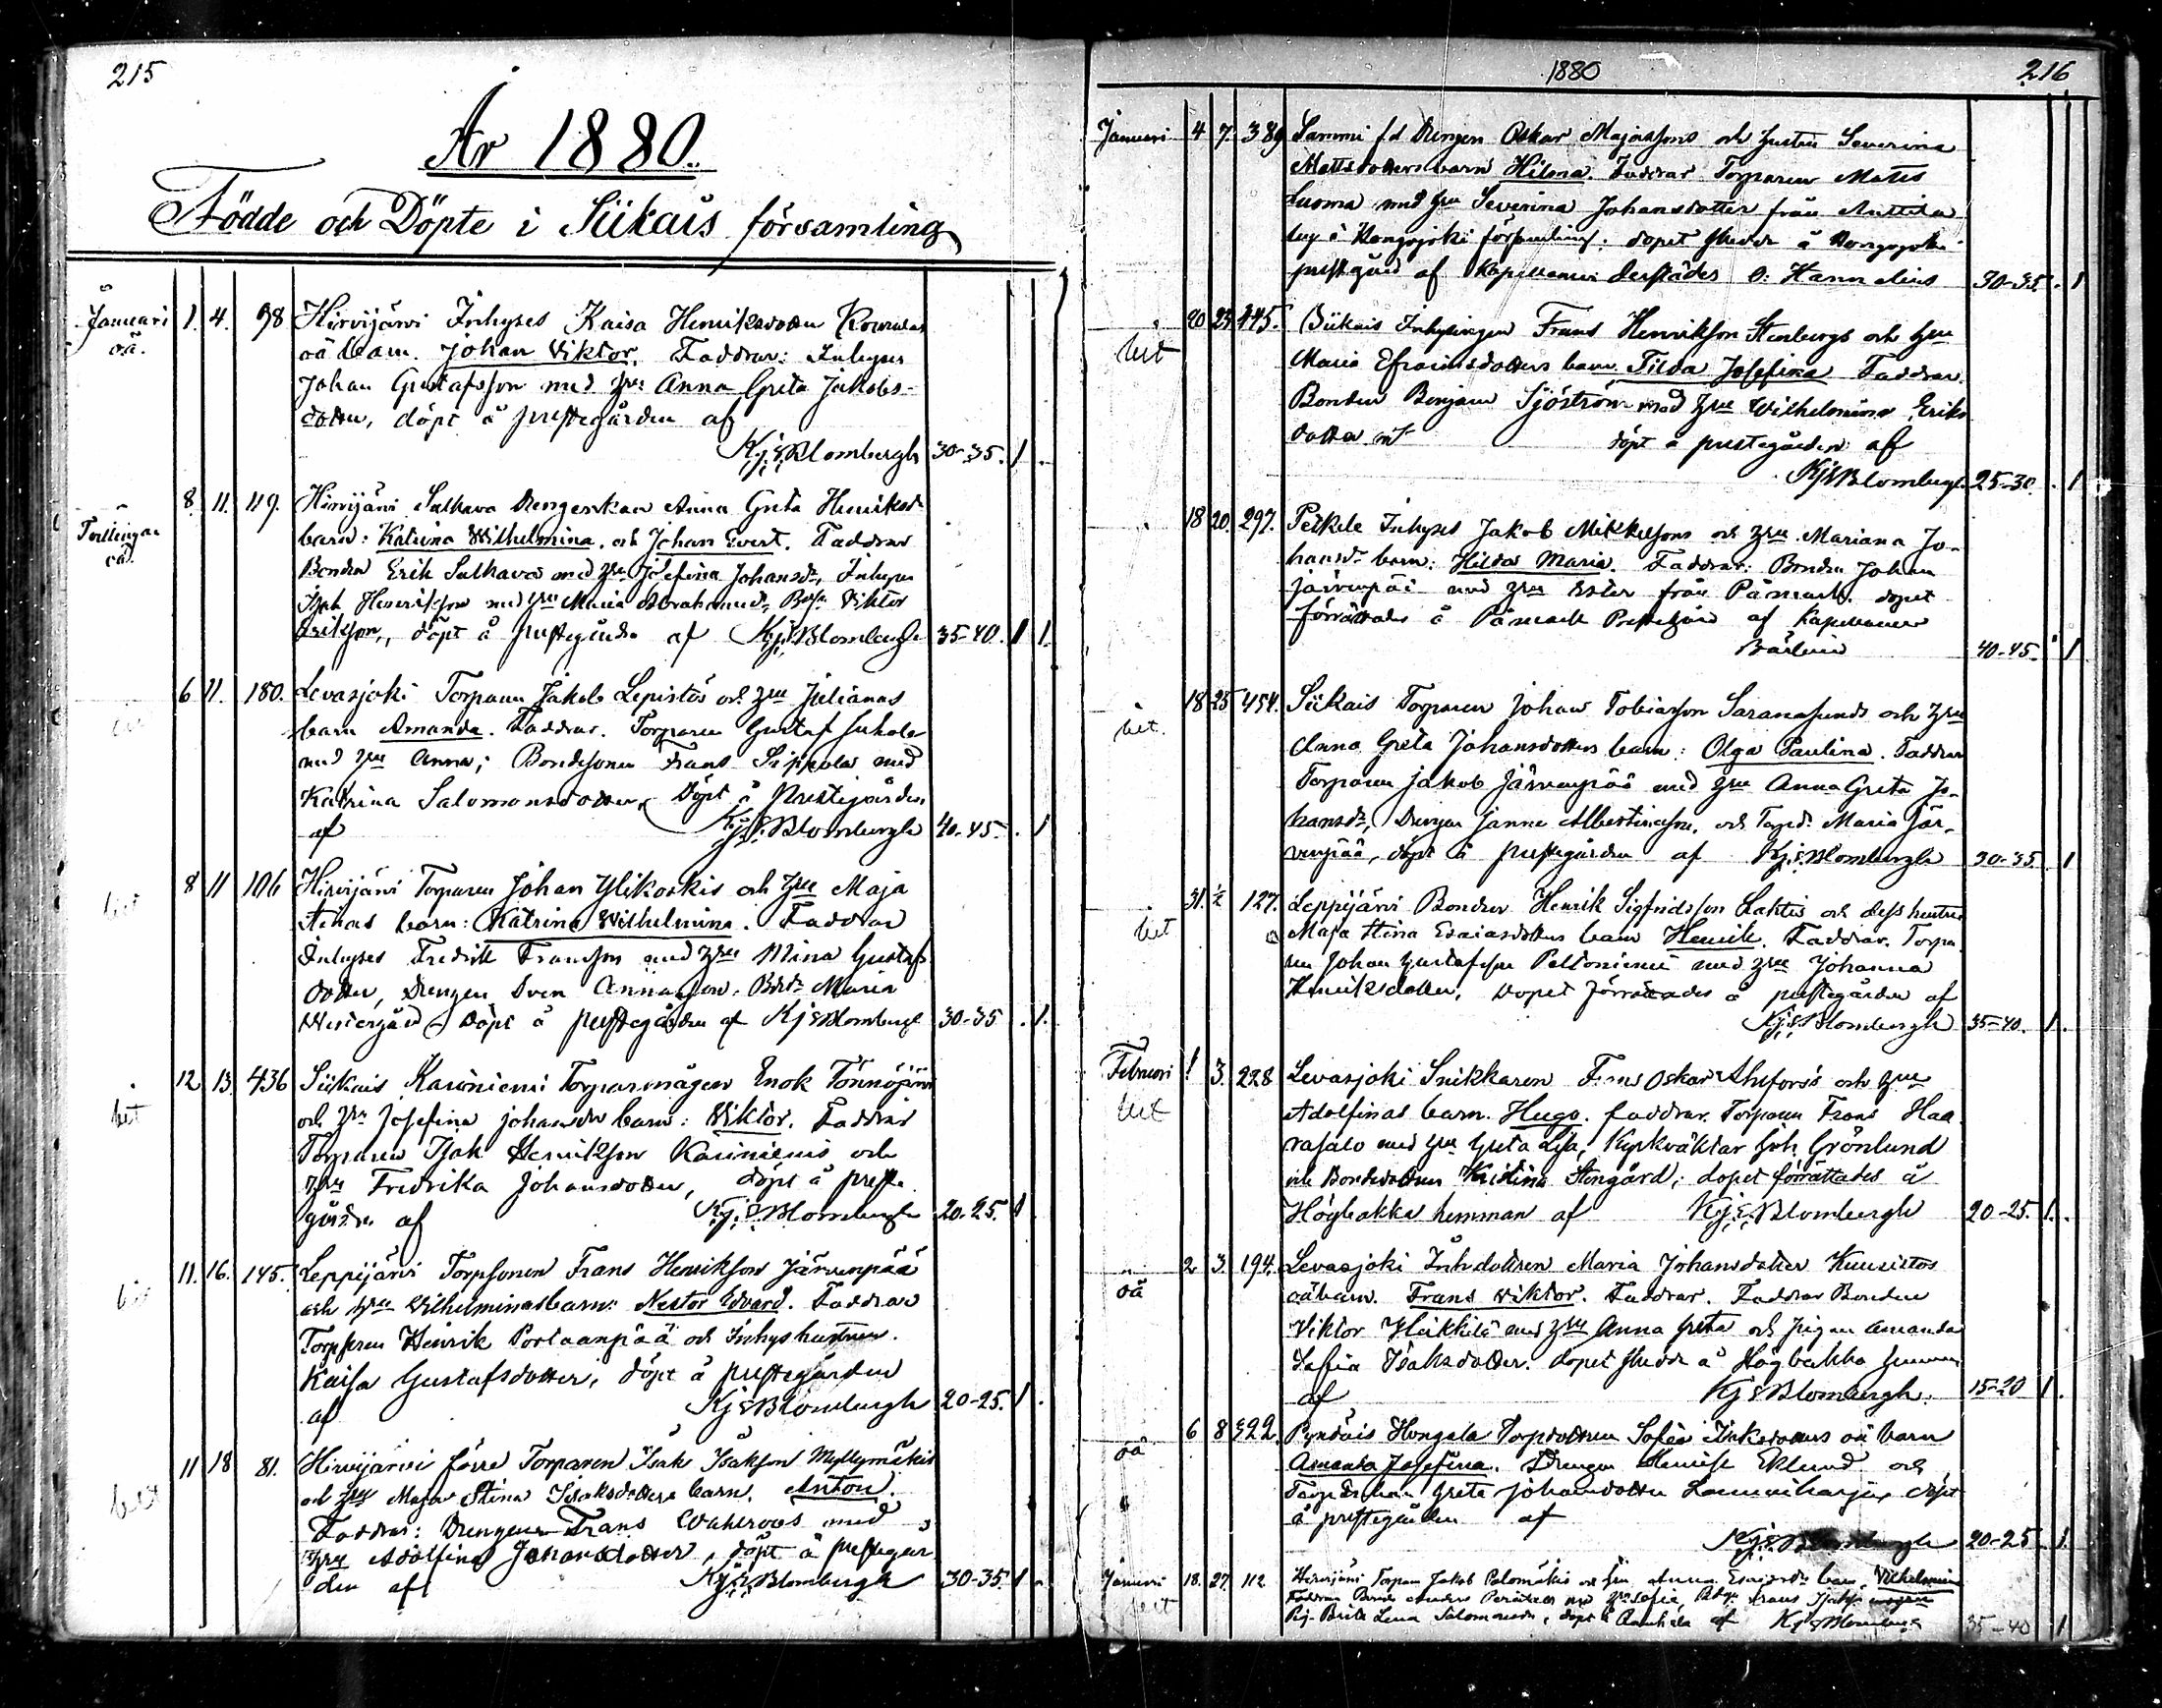 215
År 1880.
Födde och Döpte i Siikais församling
Januari 1. 4. 98 Hirvijärvi Inhyses Kaisa Henriksdotter
oä. oä barn. Johan Viktor. Faddrar: Inhyses
Johan Gustafsson med hru Anna Greta Jakobs-
dotter, döpt å prestegården af
Kj. E. Blombergh 30-35. 1
8. 11. 119. Hirvijärvi Salkava Drengenkan Anna Greta Henriksdr
Tvillingar oä. barn: Katrina Wilhelmina, och Johan Evert. Faddrar
Bonden Erik Salkava med hru Josefina Johansdr, Inhyses
Isak Henriksson med hru Maria Abrahamsdr, Viktor
Eriksson, döpt å prestegården af Kj. E. Blombergh 35-40. 1 1.
6 11. 180. Levasjoki Torparen Jakob Lepistös och hru Julianas
barn Amanda. Faddrar. Torparen Gustaf
med hru Anna; Bondesonen Frans Sippola med
Katrina Salomonsdotter, Döpt å Prestegården
af Kj. E. Blombergh 40-45. . 1
8 11 106 Hirvijärvi Torparen Johan Ylikoskis och hru Maja
Stinas barn: Katrina Wilhelmina. Faddrar
Inhyses Fredrik Fransson med hru Mina Gustafs
dotter, Drengen Sven Maria
Westergård, Döpt å prestegården af Kj E Blombergh 30-35 . 1.
12 13. 436 Siikais Kariniemi Torparmågen Enok Tönnöjärvi
och hru Josefina Johansdr barn: Viktor. Faddrar
Torparen Isak Henriksson Kariniemis och
hru Fredrika Johansdotter, döpt å preste
gården af Kj. E. Blombergh 20-25. 1
11. 16. 145. Leppijärvi Torpsonen Frans Henriksson Järvenpää
och hru Wilhelminas barn: Nestor Edvard. Faddrar
Torparen Henrik Portaanpää och Inhyshustrun.
Kaisa Gustafsdotter, döpt å prestegården
af Kj E Blombergh 20-25. 1.
11 18 81. Hirvijärvi förre Torparen Isak Isaksson Myllymäkis
och hru Maja Stina Isaksdotters barn. Anton.
Faddrar: Drengen Frans Wahlroos med
hru Adolfina Johansdotter, döpt å prestegår
den af Kj. E. Blombergh 30-35. 1
1880 216
Januari 4 7. 389 Sammi f.d. Drengen Oskar och hustru Severina
Mattsdotters barn Hilma. Faddrar Torparen Matts
Luoma med hru Severina Johansdotter från Anttila
by i Kongsjoki församling. dopet skedde å
prestgård af Kapellanen derstädes O. Hannelius 30-35. . 1
20 23 445. Siikais Inhysingen Frans Henriksson Stenbergs och hru
Maria Efraimsdotters barn Tilda Josefina Faddrar.
Bonden Benjam Sjöström med hru Wilhelmina Eriks
dotter döpt å prestegården af
Kj E Blombergh. 25-30. . 1
18 20. 297. Inhyses Jakob Mikkelssons och hru Mariana Jo-
hansdr barn: Hilda Maria. Faddrar: Bonden Johan
Järvenpää med hru Ester från Påmark. dopet
förrättades å Påmark Prestegård af Kapellanen
40-45. 1
18 25 454. Siikais Torparen Johan Tobiasson och hru
Anna Greta Johansdotters barn: Olga Paulina. Faddrar
Torparen Jakob Järvenpää med hru Anna Greta Jo-
hansdr, Drengen Janne och Maria Jär-
venpää, döpt å prestegården af Kj. E. Blombergh 30-35 1
31. ½ 127. Leppijärvi Bonden Henrik Sigfridsson Lahtis och dess hustru
Maja Stina Esaiasdotters barn Henrik. Faddrar. Torpa
ren Johan Gustafsson Peltoniemi med hru Johanna
Henriksdotter, Dopet förrättades å prestegården af
Kj. E. Blombergh 35-40. 1.
Februari 1 3. 228 Levasjoki Snikkaren Frans Oskar Ahlfors's och hru
Adolfinas barn. Hugo. faddrar. Torparen Frans Haa
rasalo med hru Greta Lisa, Kyrkväktar Joh. Grönlund
och Bondedottren Kristina Stengård; dopet förrättades å
Högbakka hemman af Kj. E. Blombergh 20-25. 1.
2 3. 194. Levasjoki Inhdottren Maria Johansdotter Kuusistos
oä oäbarn. Frans Viktor. Faddrar. Faddrar Bonden
Viktor Ylikkilä med hru Anna Greta och pigan Amanda
Sofia Isaksdotter. dopet skedde å Högbakka hemman
af Kj E Blombergh. 15-20 1.
6 8 322. Pyndäis Hongala Torpdottren Sofia oä barn
oä Amanda Josefina. Drengen Henrik Eklund och
Greta Johansdotter döpt
å prestegården af
Kj. E. Blombergh 20-25 1.
Januari 18. 27. 112 Hirvijärvi Torparen Jakob Palomäkis och hru Anna barn, Vilhelmina
Faddrar Bonden Anders med hru Sofia, Frans
Pig. Brita Lena Salomonsdr, döpt å af Kj E Blombergh 35-40 1